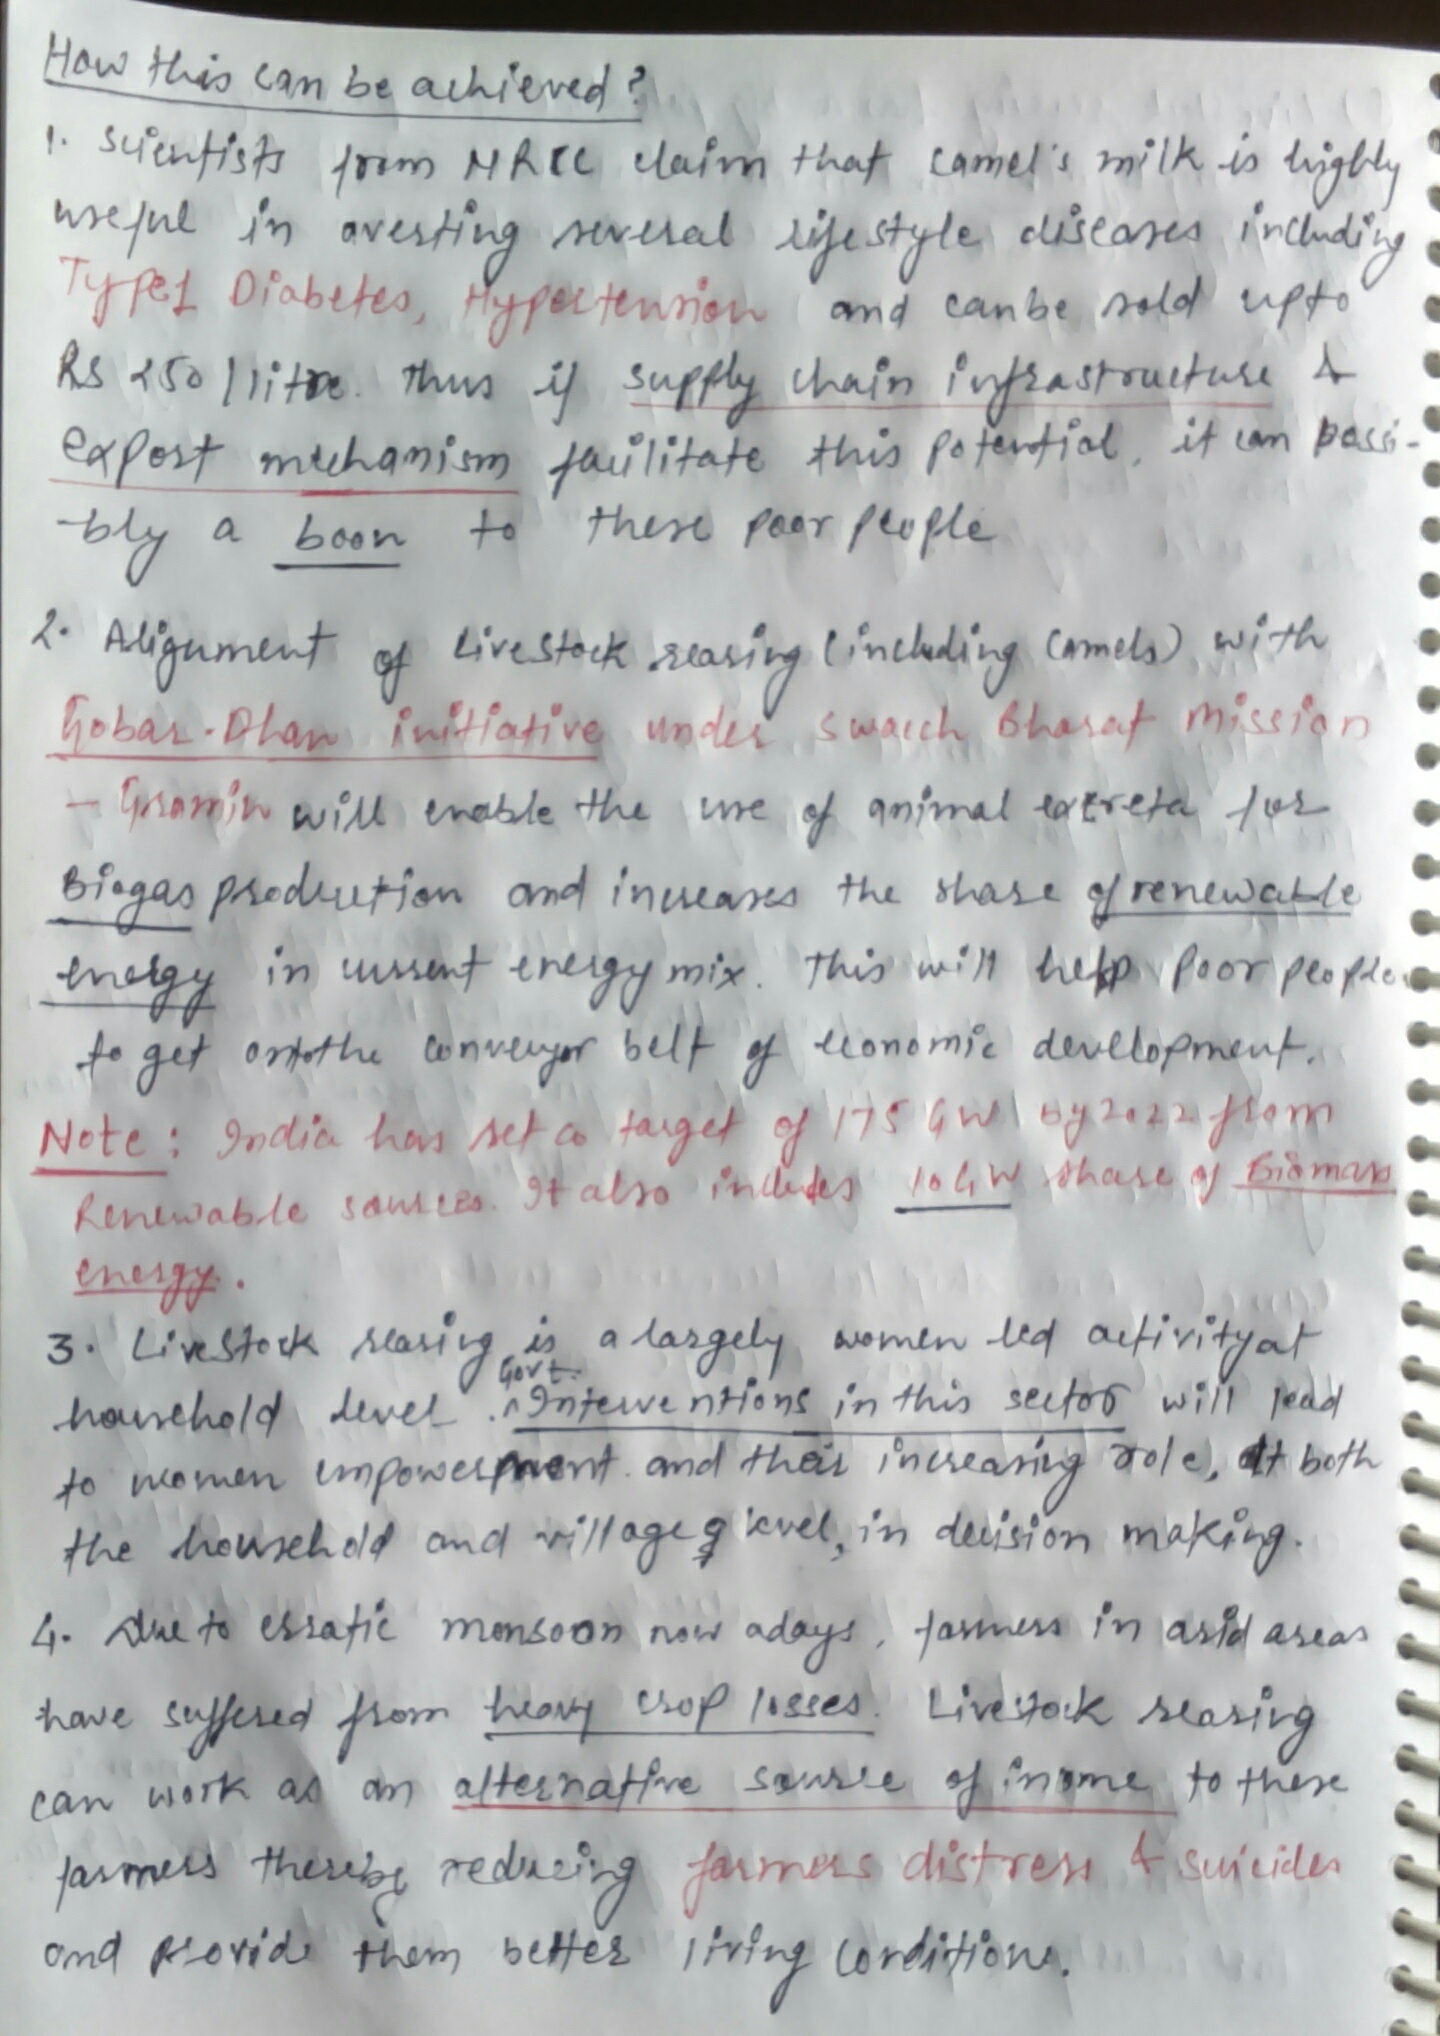 How this can be achieved?
1. Scientists from NRCC claim that camel's milk is highly
useful in averting several lifestyle diseases including
Type1 Diabetes, Hypertension and canbe sold upto
RS 250/litre. Thus if supply chain infrastructure &
export mechanism facilitate this potential, it can possi-
-bly a boon to these poor people
2. Alignment of Livestock rearing (including Camels) with
Gobar-Dhan initiative under Swacch Bharat Mission
- Gramin will enable the use of animal excreta for
Biogas production and increases the share of renewable
energy in current energy mix. This will help poor people
to get onto the conveyor belt of economic development.
Note: India has set a target of 175 GW by 2022 from
Renewable sources. It also includes 10GW share of Biomass
energy.
3. Livestock rearing is a largely women led activity at
household level. Govt. Interventions in this sector will lead
to women empowerment and their increasing role, at both
the household and village level, in decision making.
4. Due to erratic monsoon now adays, farmers in arid areas
have suffered from heavy crop losses. Livestock rearing
can work as an alternative source of income to these
farmers thereby reducing farmers distress & suicides
and provide them better living conditions.